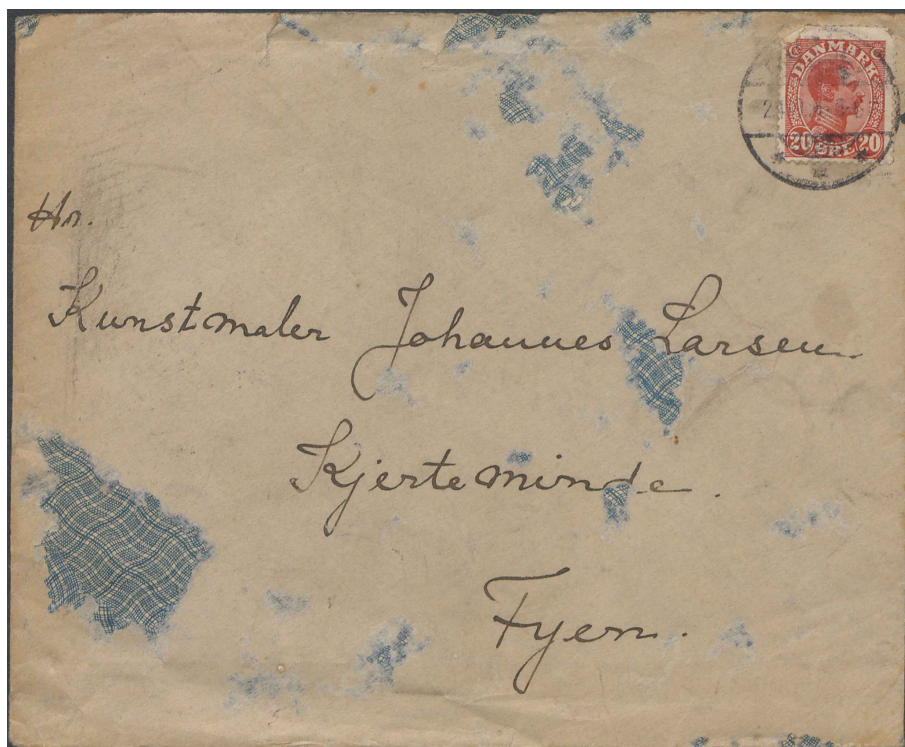 DANMARK
20 ØRE 20
Hr.
Kunstmaler Johannes Larsen.
Kjerteminde.
Fyen.